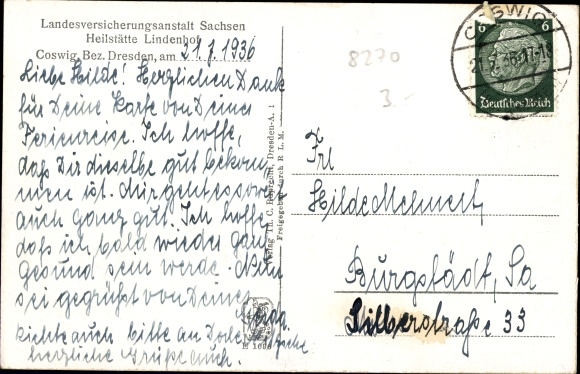 Landesversicherungsanstalt Sachsen
Heilstätte Lindenhof
Coswig, Bez. Dresden, am 21.7.1936
Liebe Hilde! Herzlichen Dank
für Deine Karte von Deiner
Ferienreise. Ich hoffe,
daß Dir dieselbe gut bekom-
men ist. Mir geht es soweit
auch ganz gut. Ich hoffe,
daß ich bald wieder ganz
gesund sein werde. Nun
sei gegrüßt von Deiner
Richte auch bitte an
herzliche Grüße auch.
8270
3.-
COSWIG
6 6
Deutsches Reich
Frl
Hilde
Burgstädt, Sa
Silberstraße 33
Dresden-A. 1
Freigegeben durch R L M